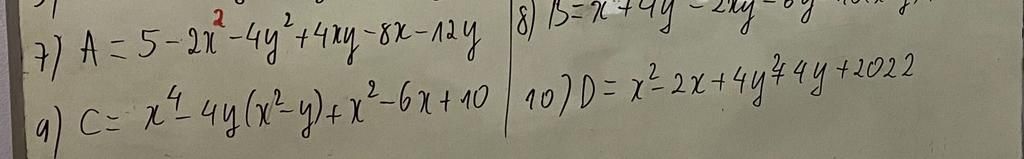 7) A = 5 - 2x² - 4y² + 4xy - 8x - 12y
9) C = x⁴ - 4y(x² - y) + x² - 6x + 10
10) D = x² - 2x + 4y² + 4y + 2022